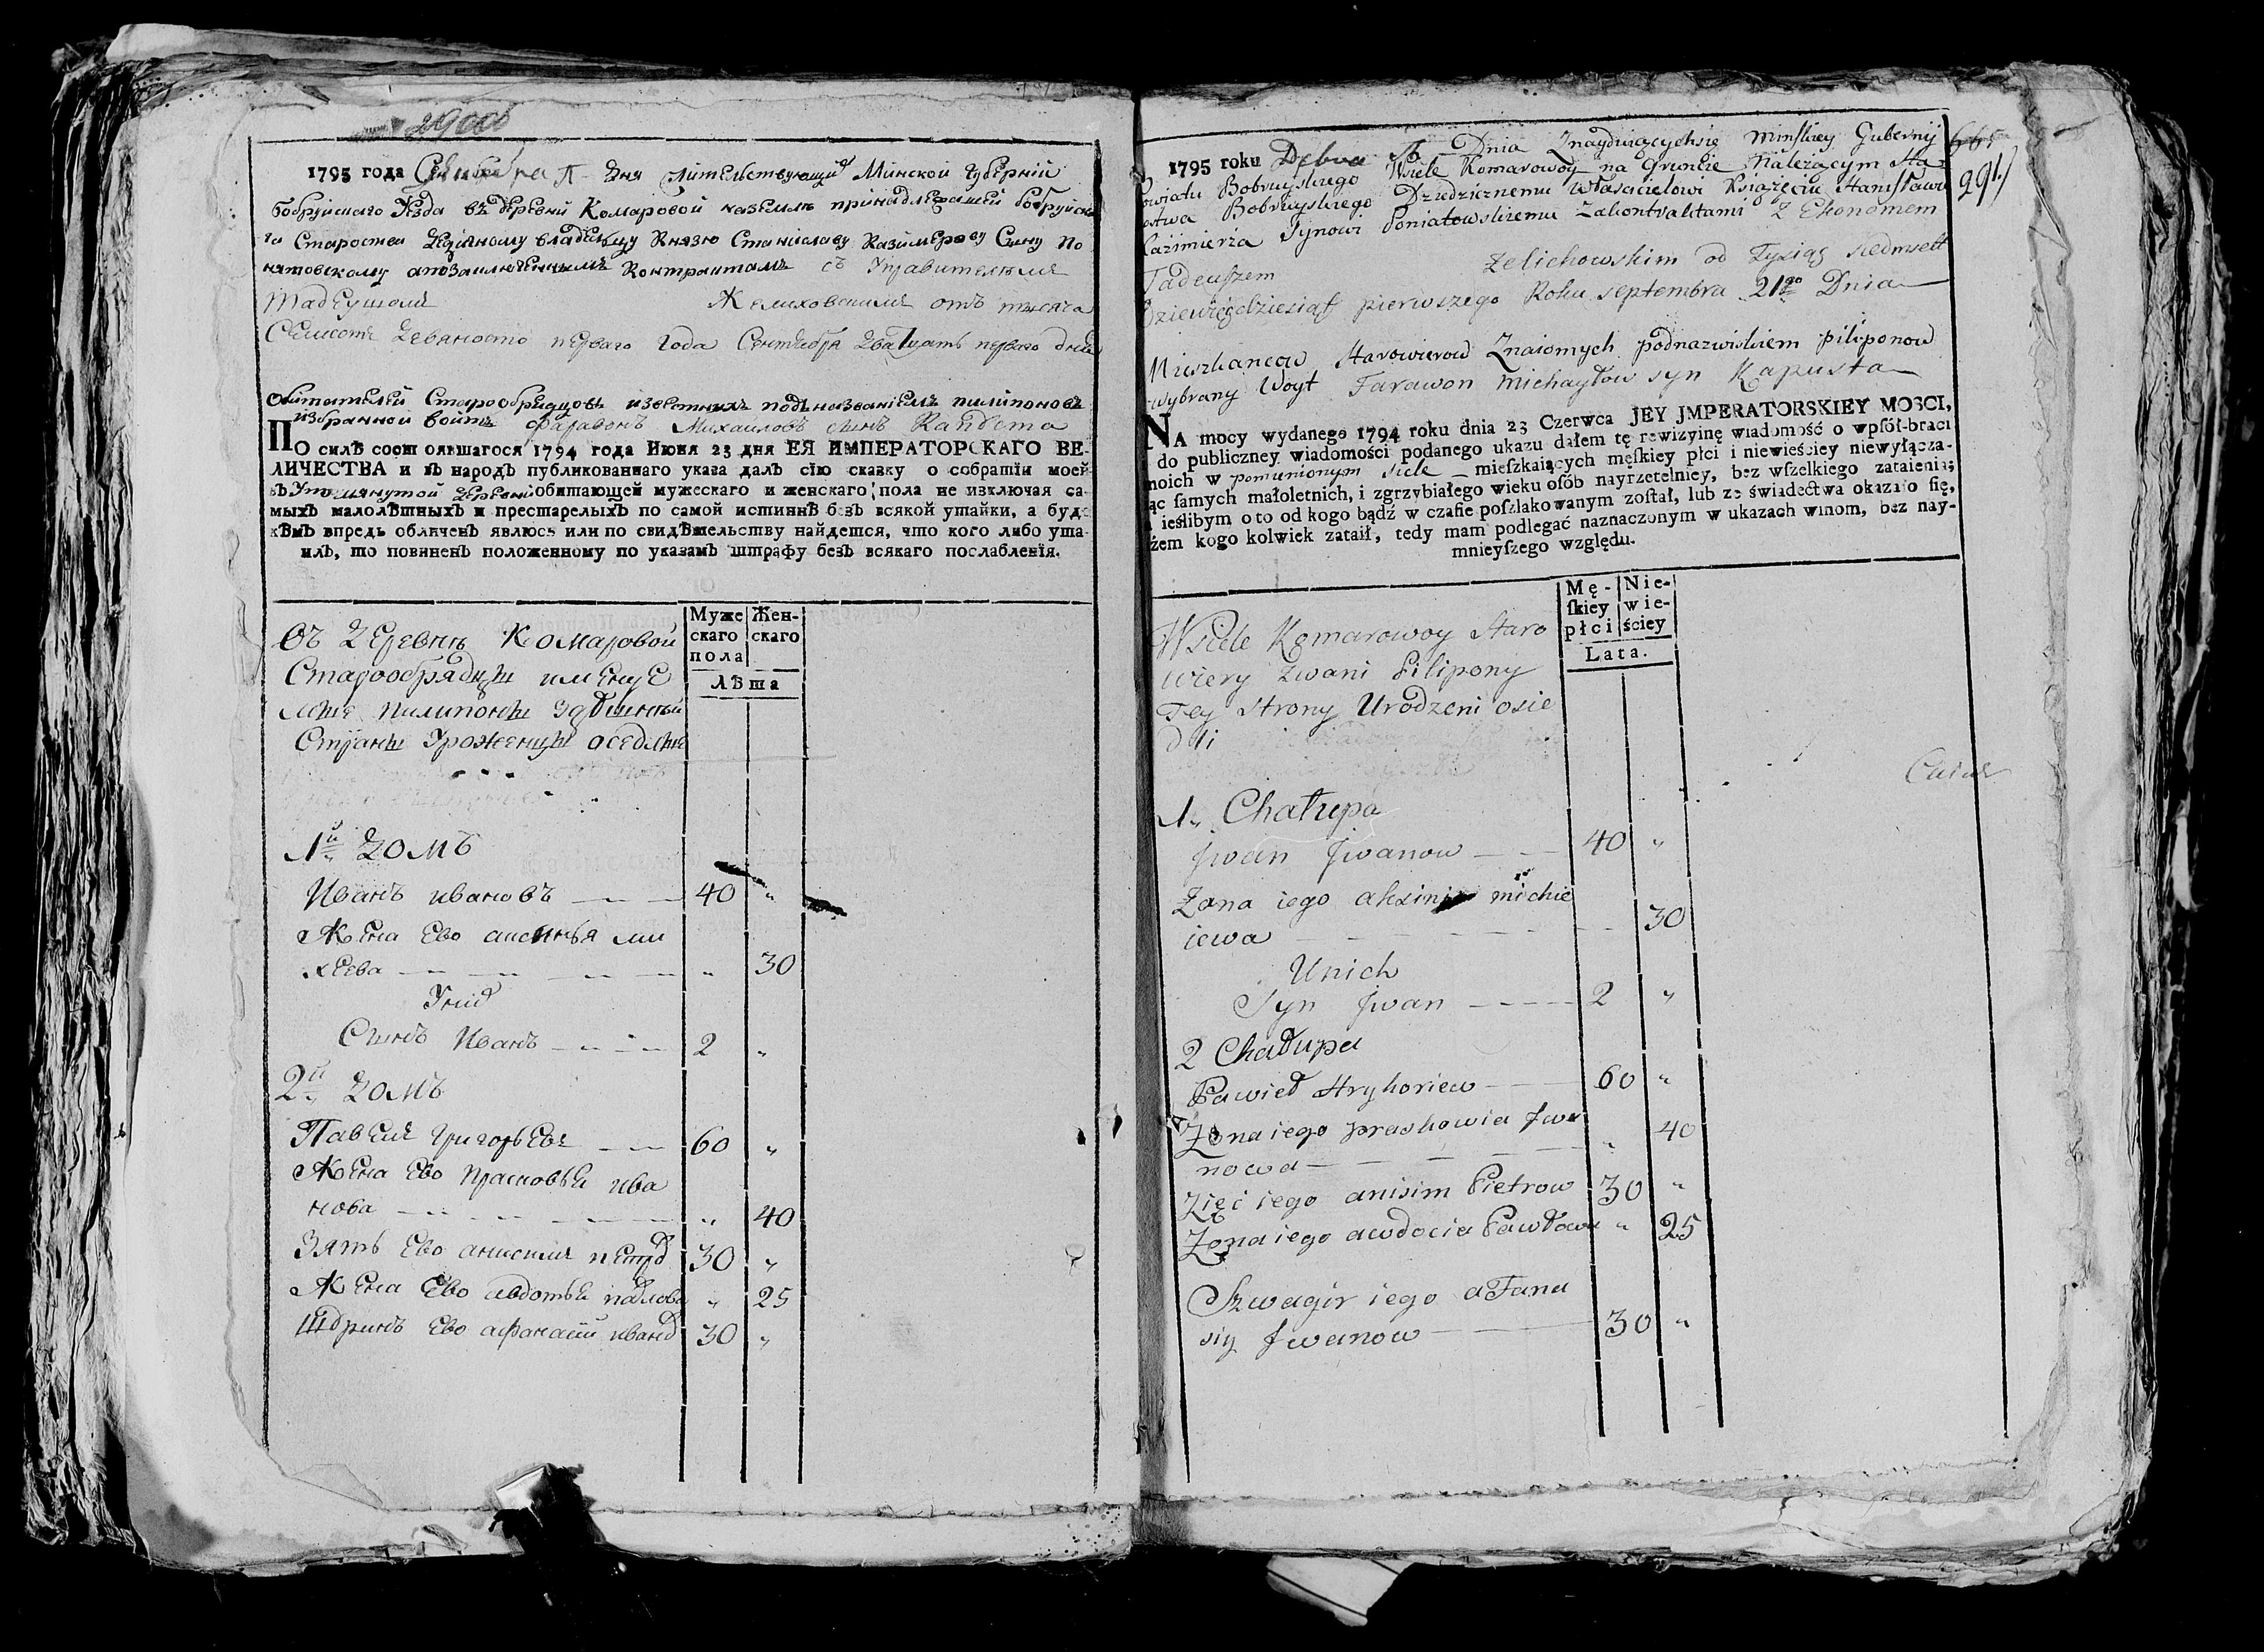 1795 года дня жительствующий Минской Губернии
Бобруйскаго Уезда въ деревни Комаровой наземле принадлежащей бобруйска
го Староства владельцу Князю Станиславу Казимерову Сыну По
нятовскому Контрактамъ съ Управителемъ
Тадеушомъ Желиховскимъ отъ тысяча
Семсотъ девяносто перваго года Сентября двадцать перваго дня
Обитателей Старообрядцовъ известныхъ подъ названиемъ пилипоновъ
избранной войтъ Фараонъ Михаиловъ сынъ Капуста
ПО силѣ состоявшагося 1794 года Июня 23 дня ЕЯ ИМПЕРАТОРСКАГО ВЕ-
ЛИЧЕСТВА и въ народъ публикованнаго указа далъ сїю сказку о собратїи моей
въ Упомянутой деревни обитающей мужескаго и женскаго пола не изключая са-
мыхъ малолѣтныхъ и престарелыхъ по самой истиннѣ безъ всякой утайки, а буде
кѣмъ впредь обличенъ явлюсь или по свидѣтельству найдется, что кого либо ута-
илъ, то повиненъ положенному по указамъ штрафу безъ всякаго послабленїя.
Муже
скаго
пола
Жен-
скаго
лѣта
Въ деревне Комаровой
Старообрядцы имене
мые пилипоны здешный
Страны Уроженцы оседлые
1й домъ
Иванъ ивановъ 40 "
Жена Ево аксинья ми
хеева " 30
У них
Сынъ Иванъ 2 "
2й домъ
Павелъ григорьевъ 60 "
Жена Ево прасковья ива
нова " 40
Зять Ево анисимъ петро 30 "
Жена Ево авдотья павлова " 25
Шуринъ Ево афанасий ивано 30 "
665
991
1795 roku Dnia Znayduiących się Minskiey Guberny
Powiatu Bobruyskiego Wsiele Komarowoy na Gruncie Należącym Sta
ostwa Bobruyskiego Dziedzicznemu Włascicielowi Książęciu Stanisławu
Kazimierza Synowi Poniatowskiemu Zakontraktami Z Ekonomem
Tadeuszem Zelichowskim od Tysiąc siedmset
Dziewięcdziesiąt pierwszego Roku septembra 21go Dnia
Mieszkancow Starowierow Znaiomych podnazwiskiem piliponow
wybrany Woyt Farawon Michayłow syn Kapusta
NA mocy wydanego 1794 roku dnia 23 Czerwca JEY JMPERATORSKIEY MOSCI,
do publiczney wiadomości podanego ukazu dałem tę rewizyinę wiadomość o wpſół-braci
moich w pomienionym siele mieſzkaiących męſkiey płci i niewieściey niewyłącza-
iąc ſamych małoletnich, i zgrzybiałego wieku oſób nayrzetelniey, bez wſzelkiego zataienia;
ieślibym o to od kogo bądź w czaſie poſzlakowanym zoſtał, lub ze świadectwa okazało ſię,
żem kogo kolwiek zataił, tedy mam podlegać naznaczonym w ukazach winom, bez nay-
mnieyſzego względu.
Mę-
ſkiey
płci
Nie-
wie-
ściey
Lata.
Wsiele Komarowoy Staro
wiery Zwani Pilipony
Tey Strony Urodzeni osie
dli
1 Chałupa
Jwan Jwanow 40 "
Zona iego aksinia michie
iewa 30
U nich
Syn Jwan 2 "
2 Chałupa
Paweł Hryhoriew 60 "
Zona iego praskowia Jwa
nowa " 40
Zięć iego anisim Pietrow 30 "
Zona iego awdocia Pawłowa " 25
Szwagir iego aFana
siy Jwanow 30 "